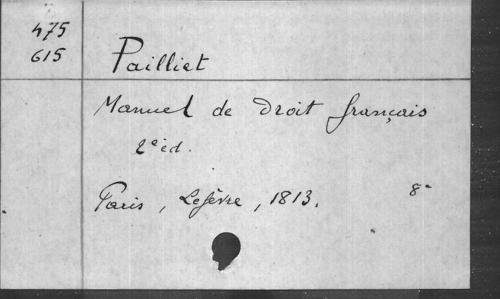 475
615
Pailliet
Manuel de Droit français
2e éd.
Paris, Lefèvre, 1813. 8°